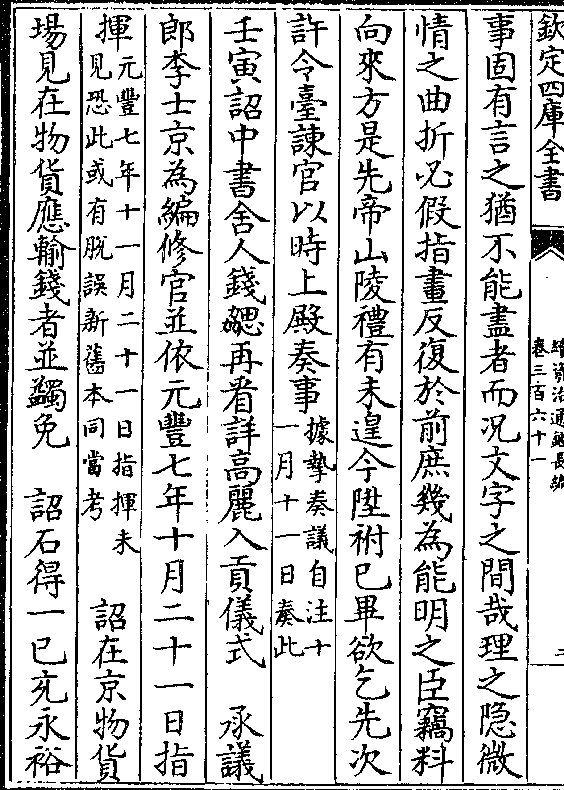 欽定四庫全書
續資治通鑑長編
卷三百六十一
二
事固有言之猶不能盡者而況文字之間哉理之隐微
情之曲折必假指畫反復於前庶幾為能明之臣竊料
向來方是先帝山陵禮有未遑今陞祔已畢欲乞先次
許令臺諫官以時上殿奏事據摯奏議自注十
一月十一日奏此
壬寅詔中書舍人錢勰再看詳高麗入貢儀式　承議
郎李士京為編修官並依元豐七年十月二十一日指
揮元豐七年十一月二十一日指揮未
見恐此或有脱誤新舊本同當考　詔在京物貨
場見在物貨應輸錢者並蠲免　詔石得一已充永裕